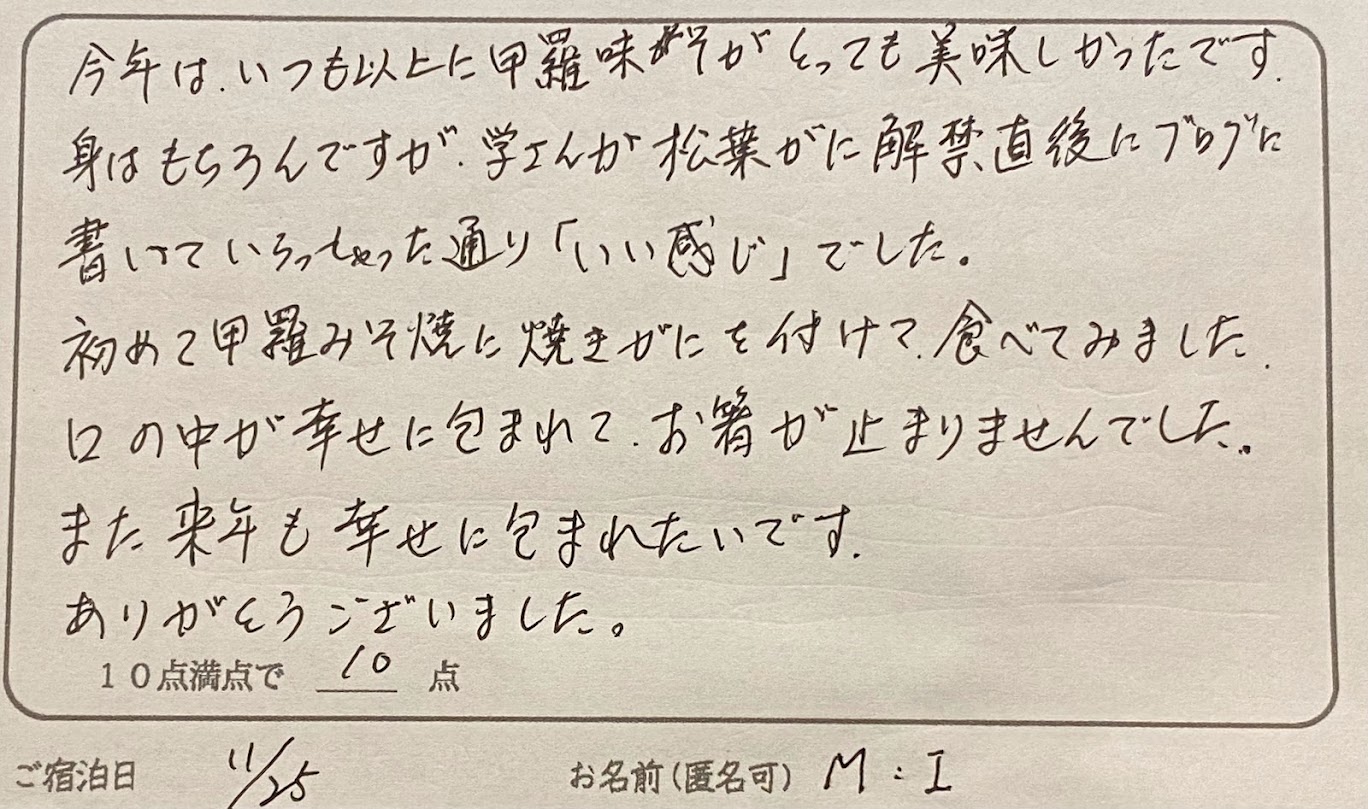 今年は、いつも以上に甲羅味そがとっても美味しかったです.
身はもちろんですが、学さんが松葉がに解禁直後にブログに
書いていらっしゃった通り「いい感じ」でした。
初めて甲羅みそ焼に焼きがにを付けて、食べてみました.
口の中が幸せに包まれて、お箸が止まりませんでした。
また来年も幸せに包まれたいです.
ありがとうございました。
10点満点で 10 点
ご宿泊日 11/25 お名前(匿名可) M:I